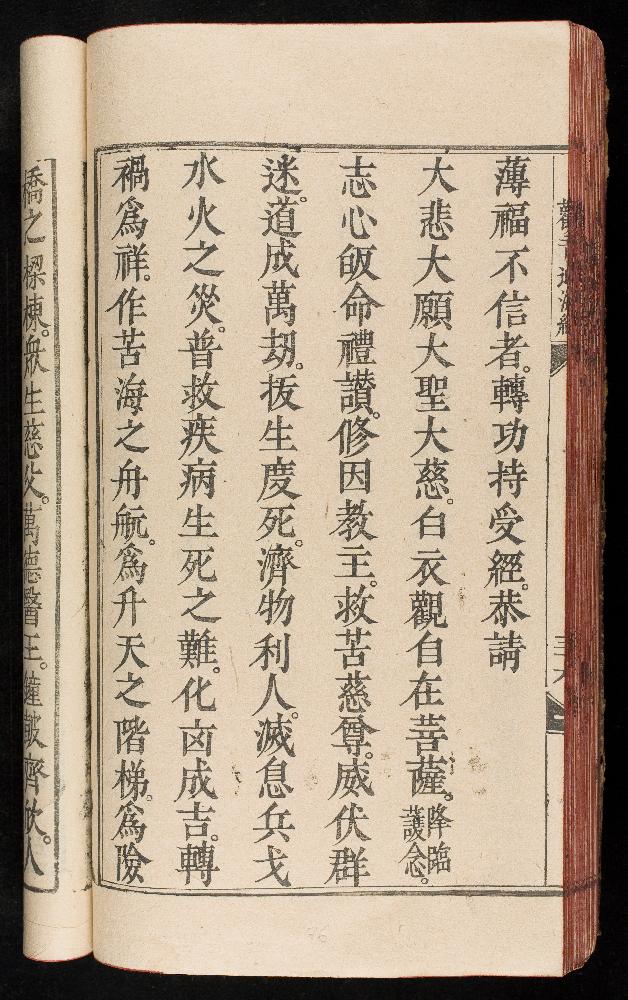 薄福不信者。轉功持受經。恭請
大悲大願大聖大慈。白衣觀自在菩薩。降臨護念。
志心皈命禮讃。修因教主。救苦慈尊。威伏群
迷。道成萬刼。扳生度死。濟物利人。滅息兵戈
水火之災。普救疾病生死之難。化凶成吉。轉
禍爲祥。作苦海之舟航。爲升天之階梯。爲險
橋之樑棟。衆生慈父。萬德醫王。鐘皷齊欽。人